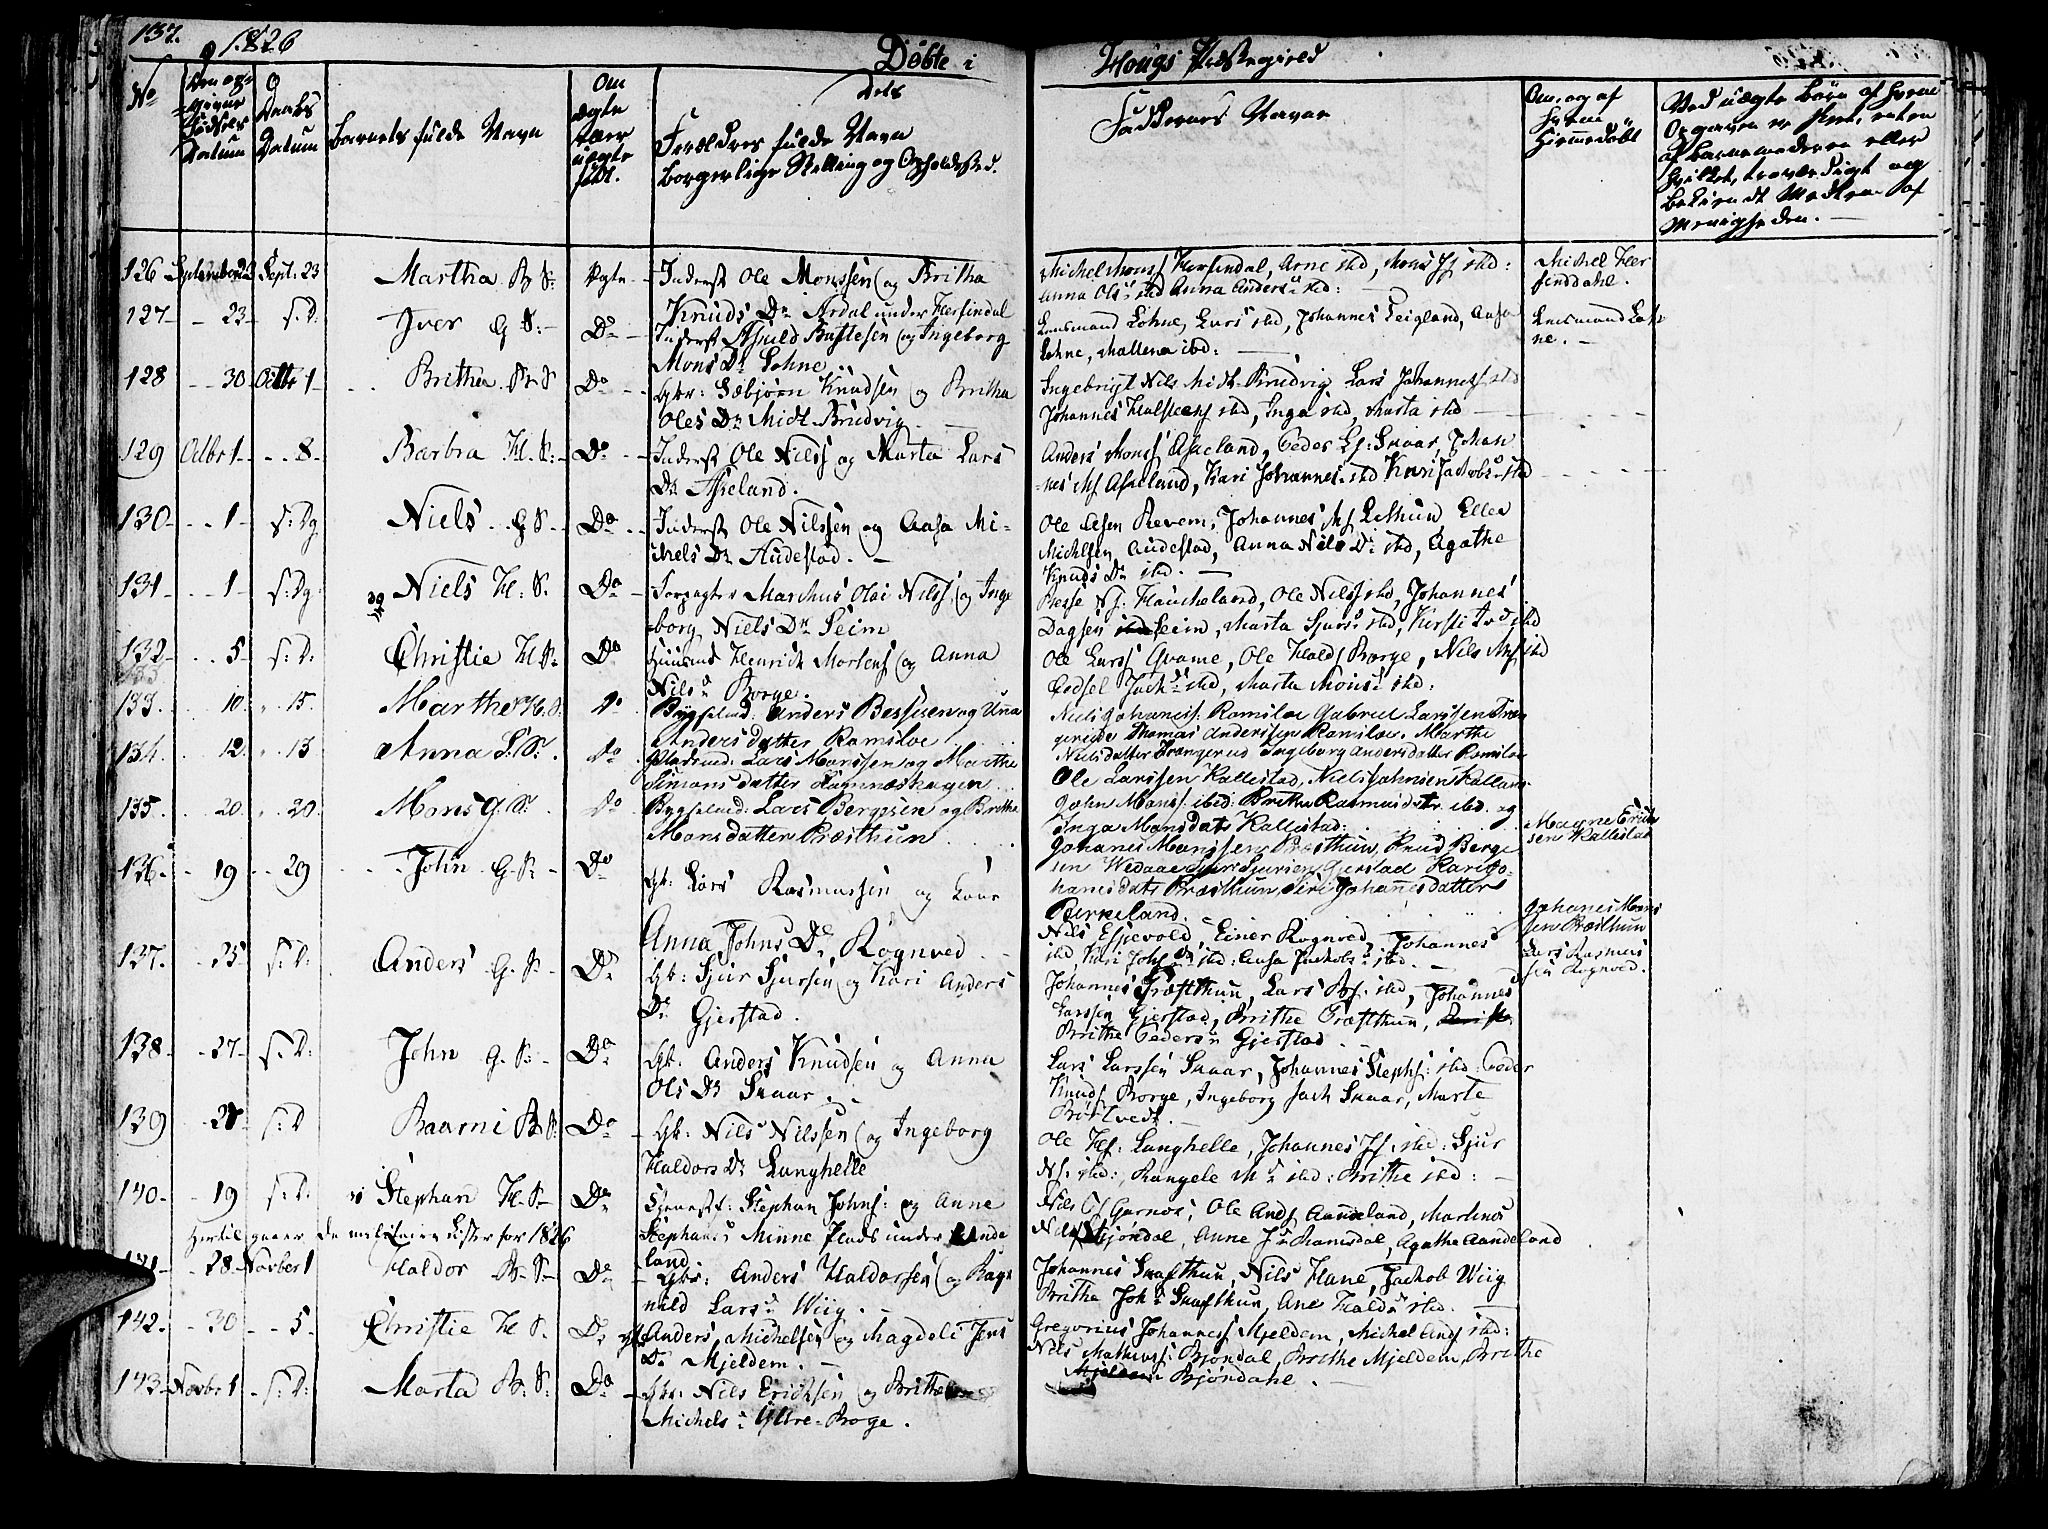 137. 1826 Döbte i Hougs Præstegield
No
Den op-
givne
Fødsels
Datum
Daabs
Datum
Barnets fulde Navn
Om
ægte
eller
uægte
født.
Forældres fulde Navn
borgerlige Stilling og Opholdssted.
Faddernes Navne
Om, og af
hvem
Hjemmedøbt
Ved uægte Børn af hvem
Opgaven er skeet, enten
af Barnemoderen eller
bekiendt Mødtræn af
Menigheden.
126 Septembr 22 Sept: 23 Martha B S: Ægte Inderst Ole Monssen og Britha
Knuds Dr Ardal under Herfindal
Michel Monss Herfindal, Arne ibd, Mons Js ibd:
Anna Olsdr ibd Anna Andersdr ibd:
Michel Her
finddahl.
127 23 s. D. Iver G S: Do Inderst Askild Brittesen og Ingeborg
Mons Dr Lohne
Lensmand Lohne, Lars ibd, Johannes Leigland, Aasa
Lohne, Mallena ibd:
Lensmand Loh
ne.
128 30 Octbr 1 Britha B S Do Gbr: Sæbjørn Knudsen og Britha
Oles Dr Midt-Brudvig
Ingebrigt Nils Midt-Brudvig Lars Johanness ibd
Johannes Halstens ibd, Inga ibd, Marta ibd
129 Octbr 1 8 Barbra H. S: Do Inderst Ole Nilss og Marta Lars
Dr Askeland.
Anders Monss Askeland, Peder Es: Skaar, Johan
nes Ms Askeland, Kari Johannes: ibd Kari Jackobs ibd
130 1 s: Dg Niels G S Do Inderst Ole Nilssen og Aasa Mi-
chels Dr Audestad.
Ole Olsen Revem, Johannes Ms Lethun, Ellev
Michelsen, Audestad, Anna Nils Dr ibd, Agathe
Knuds Dr ibd.
131 1 s: Dg Niels H: S. Do Forpagter Marchus Olai Nilss og Inge
borg Niels Dr Seim
Besse Ns: Haucheland, Ole Nilss ibd, Johannes
Dagsen Seim, Marta Sjursdr ibd, Kirsti ibd
132 5 s: D: Christie H S: Do Huusmd Henrick Mortens og Anna
Nilsdr Borge.
Ole Larss Qvame, Ole Halds Borge, Nils Ms ibd
Cedsel Jackdr ibd, Marta Monsdr ibd:
133. 10 15. Marthe H. S. Do Bygselmd: Anders Bessesen og Una
Andersdatter Ramsloe
Niels Johaness: Ramsloe Gabriel Larssen Tran
gereide Thomas Anderssen Ramsloe. Marthe
Nielsdatter Trangereid Ingeborg andersdatter Ramsloe
134. 12. 13 Anna S. S. Do Pladsmd: Lars Monssen og Marthe
Simons datter Ramnæshagen
Ole Larssen Kallestad, Niels Johnsen Kalland
John Mons: ibed. Britha Rasmusdatr. ibd. og
Inga Monsdatr Kallestad:
135. 20. 20. Mons G. S. Do Bygselmd: Lars Bergesen og Britha
Monsdatter Præsthun
Johanes Monssen Præsthun, Knud Berge
sen Wedaae Sjur Sjursen Gjerstad Kari Jo-
hanesdatr Præsthun, Siri Johanesdatter
Birkeland.
Magne Erik
sen Kallestad
136. 19 29 John G. S. Do Gb: Lars Rasmussen og Kone
Anna Johns Dr, Rognved
Nils Espevold, Einer Rognved, Johannes
ibd, Kari Johsdr ibd: Aasa Jackobsdr ibd.
Johanes Mons
sen Præsthun
137. 25 s: D: Anders G. S. Do Gb: Sjur Sjursen og Kari Anders
Dr Gjerstad.
Johannes Præsthun, Lars Bs. ibd, Johannes
Larssen Gjerstad, Brithe Præsthun,
Brithe Pedersdr Gjerstad
Lars Rasmus
sen Rognved.
138 27 s: D: John G. S: Do Gb: Anders Knudsen og Anna
Ols Dr Skaar
Lars Larssen Skaar, Johannes Stephs: ibd: Peder
Knuds Borge, Ingeborg Jach Skaar, Marte
Børtvedt.
139 28 s: D Baarni B S: Do Gb: Nils Nilssen og Ingeborg
Haldors Dr Langhelle
Ole Hs: Langhelle, Johannes Js: ibd: Sjur
Ns: ibd:, Rangele Mdr ibd: Brithe ibd:
140. 19 s: D: Stephan H. S. Do Tjenest: Stephan Johns: og Anne
Stephans Minne Plads under Ande
land.
Nils Os Garnes, Ole Ands Aandeland, Martinus
Nils Bjøndal, Anne Jdr Ramsdal, Agathe Aandeland
Hertil gaaer de mellemste Lister for 1826
141 28 Novber 1 Haldor B. S. Do Gbr: Anders Haldorssen og Rag
nild Larsdr Wiig.
Johannes Skafthun, Nils Hane, Jackob Wiig
Brithe Johdr Skafthun, Ane Halddr ibd.
142. 30 5. Christie H S. Do Anders Michelsen og Magdeli Jens
Dr Mjeldem.
Gregorius Johanness Mjeldem, Michel Ands ibd:
Nils Mathiass: Bjøndal, Brithe Mjeldem, Brithe
Bjøndahl.
143 Novbr 1 s: D: Marta B: S: Do Gbr: Nils Erichsen og Brithe
Michelsdr Yttre-Boge.